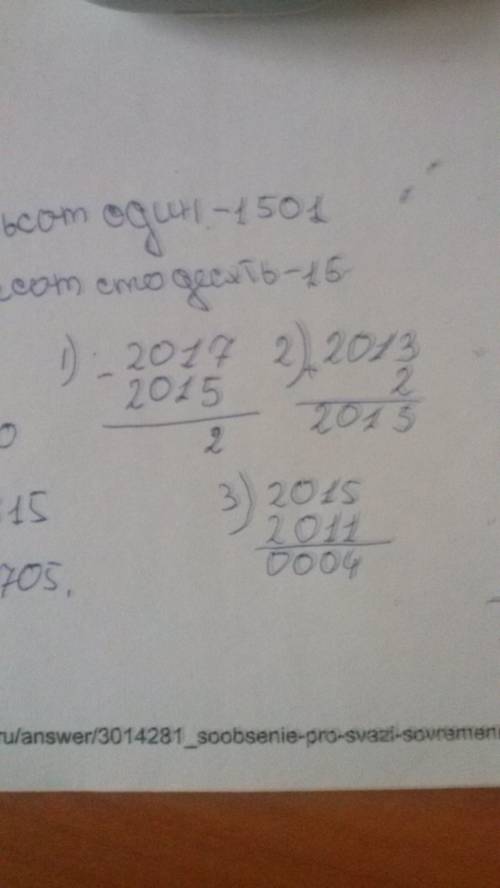 ьсот один - 1501
сот сто десять - 15
1) - 2017 2) + 2013
2015 2
2 2015
0
15 3) 2015
2011
705. 0004
ru/answer/3014281_soobsenie-pro-svazi-sovremen